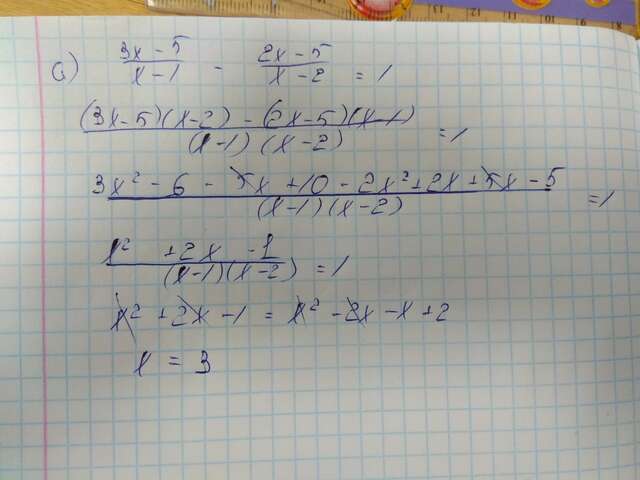 a) (3x - 5)/(x - 1) - (2x - 5)/(x - 2) = 1
((3x - 5)(x - 2) - (2x - 5)(x - 1))/((x - 1)(x - 2)) = 1
(3x² - 6 - 5x + 10 - 2x² + 2x + 5x - 5)/((x - 1)(x - 2)) = 1
(x² + 2x - 1)/((x - 1)(x - 2)) = 1
x² + 2x - 1 = x² - 2x - x + 2
x = 3